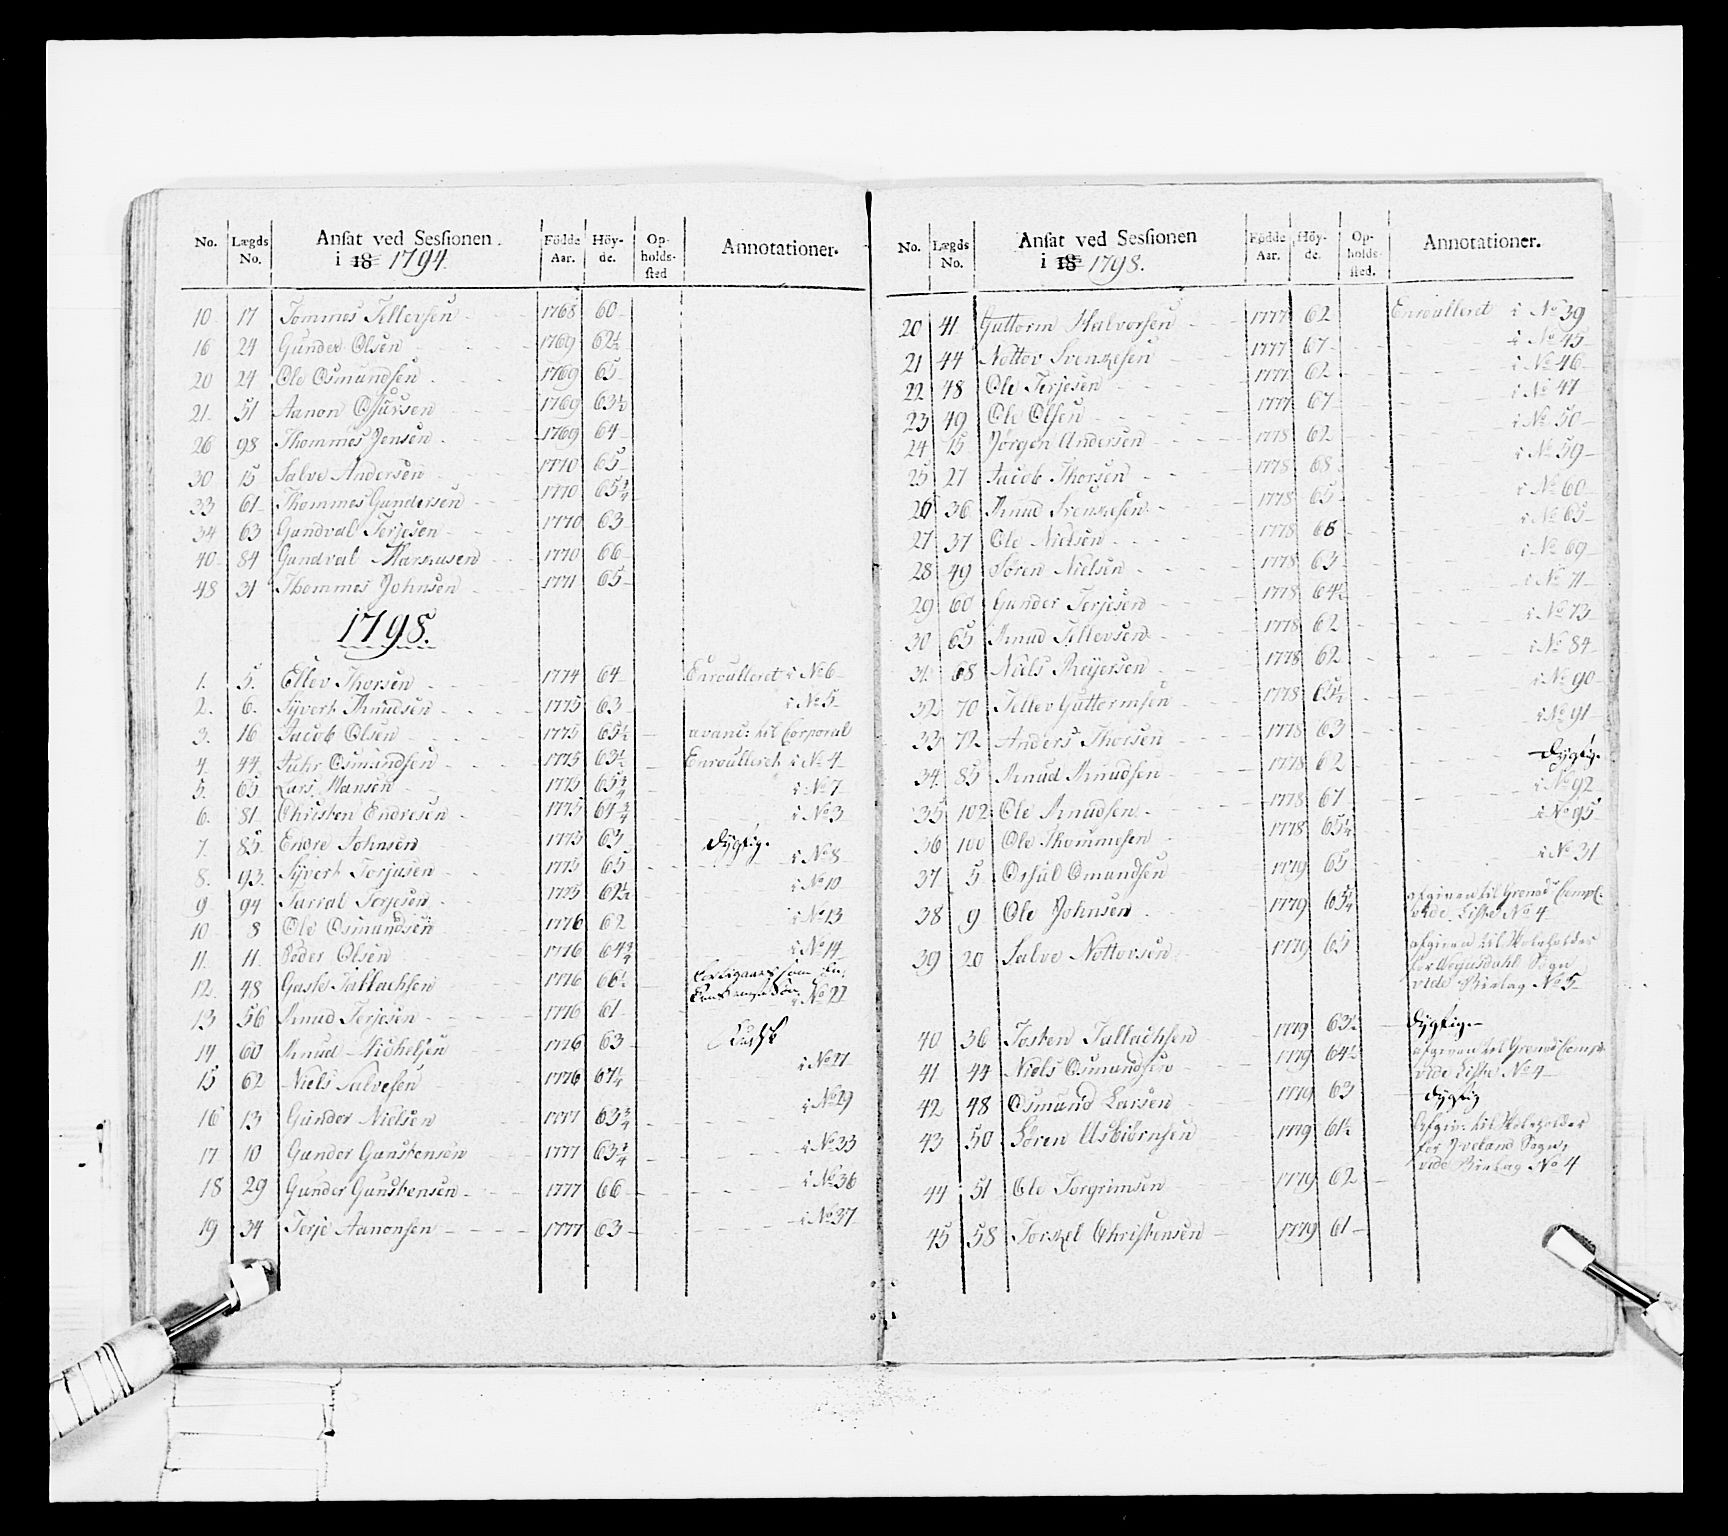 No. Lægds No. Ansat ved Sessionen i 18 1794 Födde Aar. Höyde. Opholdssted Annotationer.
10 17 Tommes Tellevsen 1768 60
16 24 Gunder Olsen 1769 62½
20 24 Ole Osmundsen 1769 65
21 51 Aanon Osursen 1769 63½
26 98 Thommes Jensen 1769 64
30 15 Salve Andersen 1770 65
33 61 Thommes Gundersen 1770 65¾
34 63 Gundval Terjesen 1770 63
40 84 Gundval Marcusen 1770 66
48 31 Thommes Johnsen 1771 65
1798.
1. 5. Ellev Thorsen 1774 64 Enroulleret i No 6
2. 6. Syvert Knudsen 1775 63 i No 5
3. 16 Jacob Olsen 1775 65½ avanc: til Corporal
4. 44 Osmundsen 1775 63½ Enrolleret i No 4
5. 65 Lars Hansen 1775 65¾ i No 7
6. 81 Christen Endresen 1775 64¾ i No 3
7. 85 Endre Johnsen 1775 63 Dygtig.
8. 93. Syvert Torjusen 1775 65 i No 8
9 94 Tarral Terjesen 1775 62½ i No 10
10 8 Ole Osmundsen 1776 62 i No 13
11. 11. Peder Olsen 1776 64¾ i No 14
12. 48 Tallachsen 1776 66½ i No 22
13 56 Knud Terjesen 1776 61
14 60 Knud Michelsen 1776 63 i No 27
15 62 Niels Salvesen 1776 67½
16 13 Gunder Nielsen 1777 63¾ i No 29
17 10 Gunder Gunstensen 1777 63¾ i No 33
18 29 Gunder Gunstensen 1777 66 i No 36
19 34 Terje Aanonsen 1777 63 i No 37
No. Lægds No. Ansat ved Sessionen i 18 1798. Födde Aar. Höyde. Opholdssted. Annotationer.
20 41 Guttorm Halvorsen 1777 62 Enroulleret i No 39
21 44 Nottov Svenkesen 1777 67 i No 45
22 48 Ole Terjesen 1777 62 i No 46
23 49 Ole Olsen 1777 67 i No 47
24 15 Jørgen Andersen 1778 62 i No 50
25 27 Jacob Thorsen 1778 68 i No 59
26 36 Knud Svenkesen 1778 65 i No 60
27 37 Ole Nielsen 1778 66 i No 65
28 49 Søren Nielsen 1778 63 i No 69
29 60 Gunder Terjesen 1778 64½ i No 71
30 65 Knud Tellevsen 1778 62 i No 73
31. 68 Niels Reyersen 1778 62 i No 84
32 70 Tellev Guttormsen 1778 65½ i No 90
33 72 Anders Thorsen 1778 63 i No 91
34. 85 Knud Knudsen 1778 62 Dygtig.
35 102 Ole Knudsen 1778 67 i No 92
36 100 Ole Thommesen 1778 65½ i No 95
37 5 Omundsen 1779 65 i No 31
38 9 Ole Johnsen 1779 65¾ afgiven til Grenad: Comp:
vide Liste No 4
39 20 Salve Nottovsen 1779 65 afgiven til Skoleholder
for Wegusdahl Sogn
vide Bielag No 5
40 36 Tosten Tallachsen 1779 63½ Dygtig.
41 44 Niels Osmundsen 1779 64½ afgiven til Grenad: Comp:
vide Liste No 4
42 48 Osmund Larsen 1779 63 Dygtig
43 50 Sören Asbiörnsen 1779 61½ Afgiv: til Skoleholder
for Iveland Sogn,
vide Bielag No 4
44 51 Ole Torgrimsen 1779 62
45 58 Torkel Christensen 1779 61